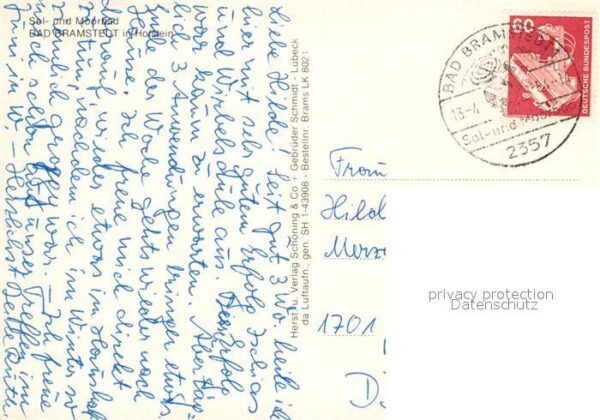 Sol- und Moorbad
BAD BRAMSTEDT in Holstein
Liebe Hilde! Seit gut 3 Wo. heile ich
hier mit sehr gutem Erfolg Ischias
und Wirbelsäule aus. Der Erfolg
war kaum zu erwarten. Am Tag
sind 3 Anwendungen
Ende der Woche gehts wieder nach
Hause. Ich freue mich direkt
darauf, wieder etwas im Haushalt
zu tun, nachdem ich im Winter so
groggy war. – Ich freue
mich schon auf unser Treffen im
Juni i. W. – Herzlichst Deine Ruth
Herst. u. Verlag Schöning & Co + Gebrüder Schmidt - Lübeck
da Luftaufn., gen. SH 1-43908 - Bestellnr. Brams LK 8021
60
DEUTSCHE BUNDESPOST
BAD BRAMSTEDT 1
13.-4.
Sol- und Moorbad
2357
Frau
Hild
Merz
1701
D
privacy protection
Datenschutz